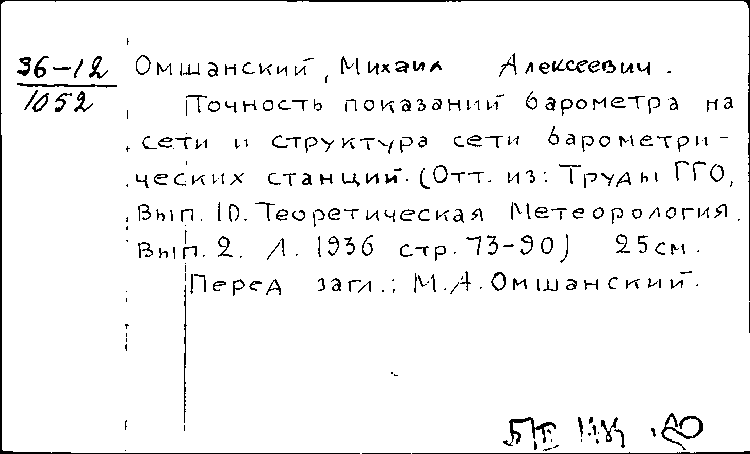 36-12
1052
Омшанский, Михаил Алексеевич.
Точность показаний барометра на
сети и структура сети барометри-
ческих станций. (Отт. из: Труды ГГО,
Вып. 10. Теоретическая Метеорология.
Вып. 2. Л. 1936 стр. 73-90) 25см.
Перед загл.: М.А. Омшанский.